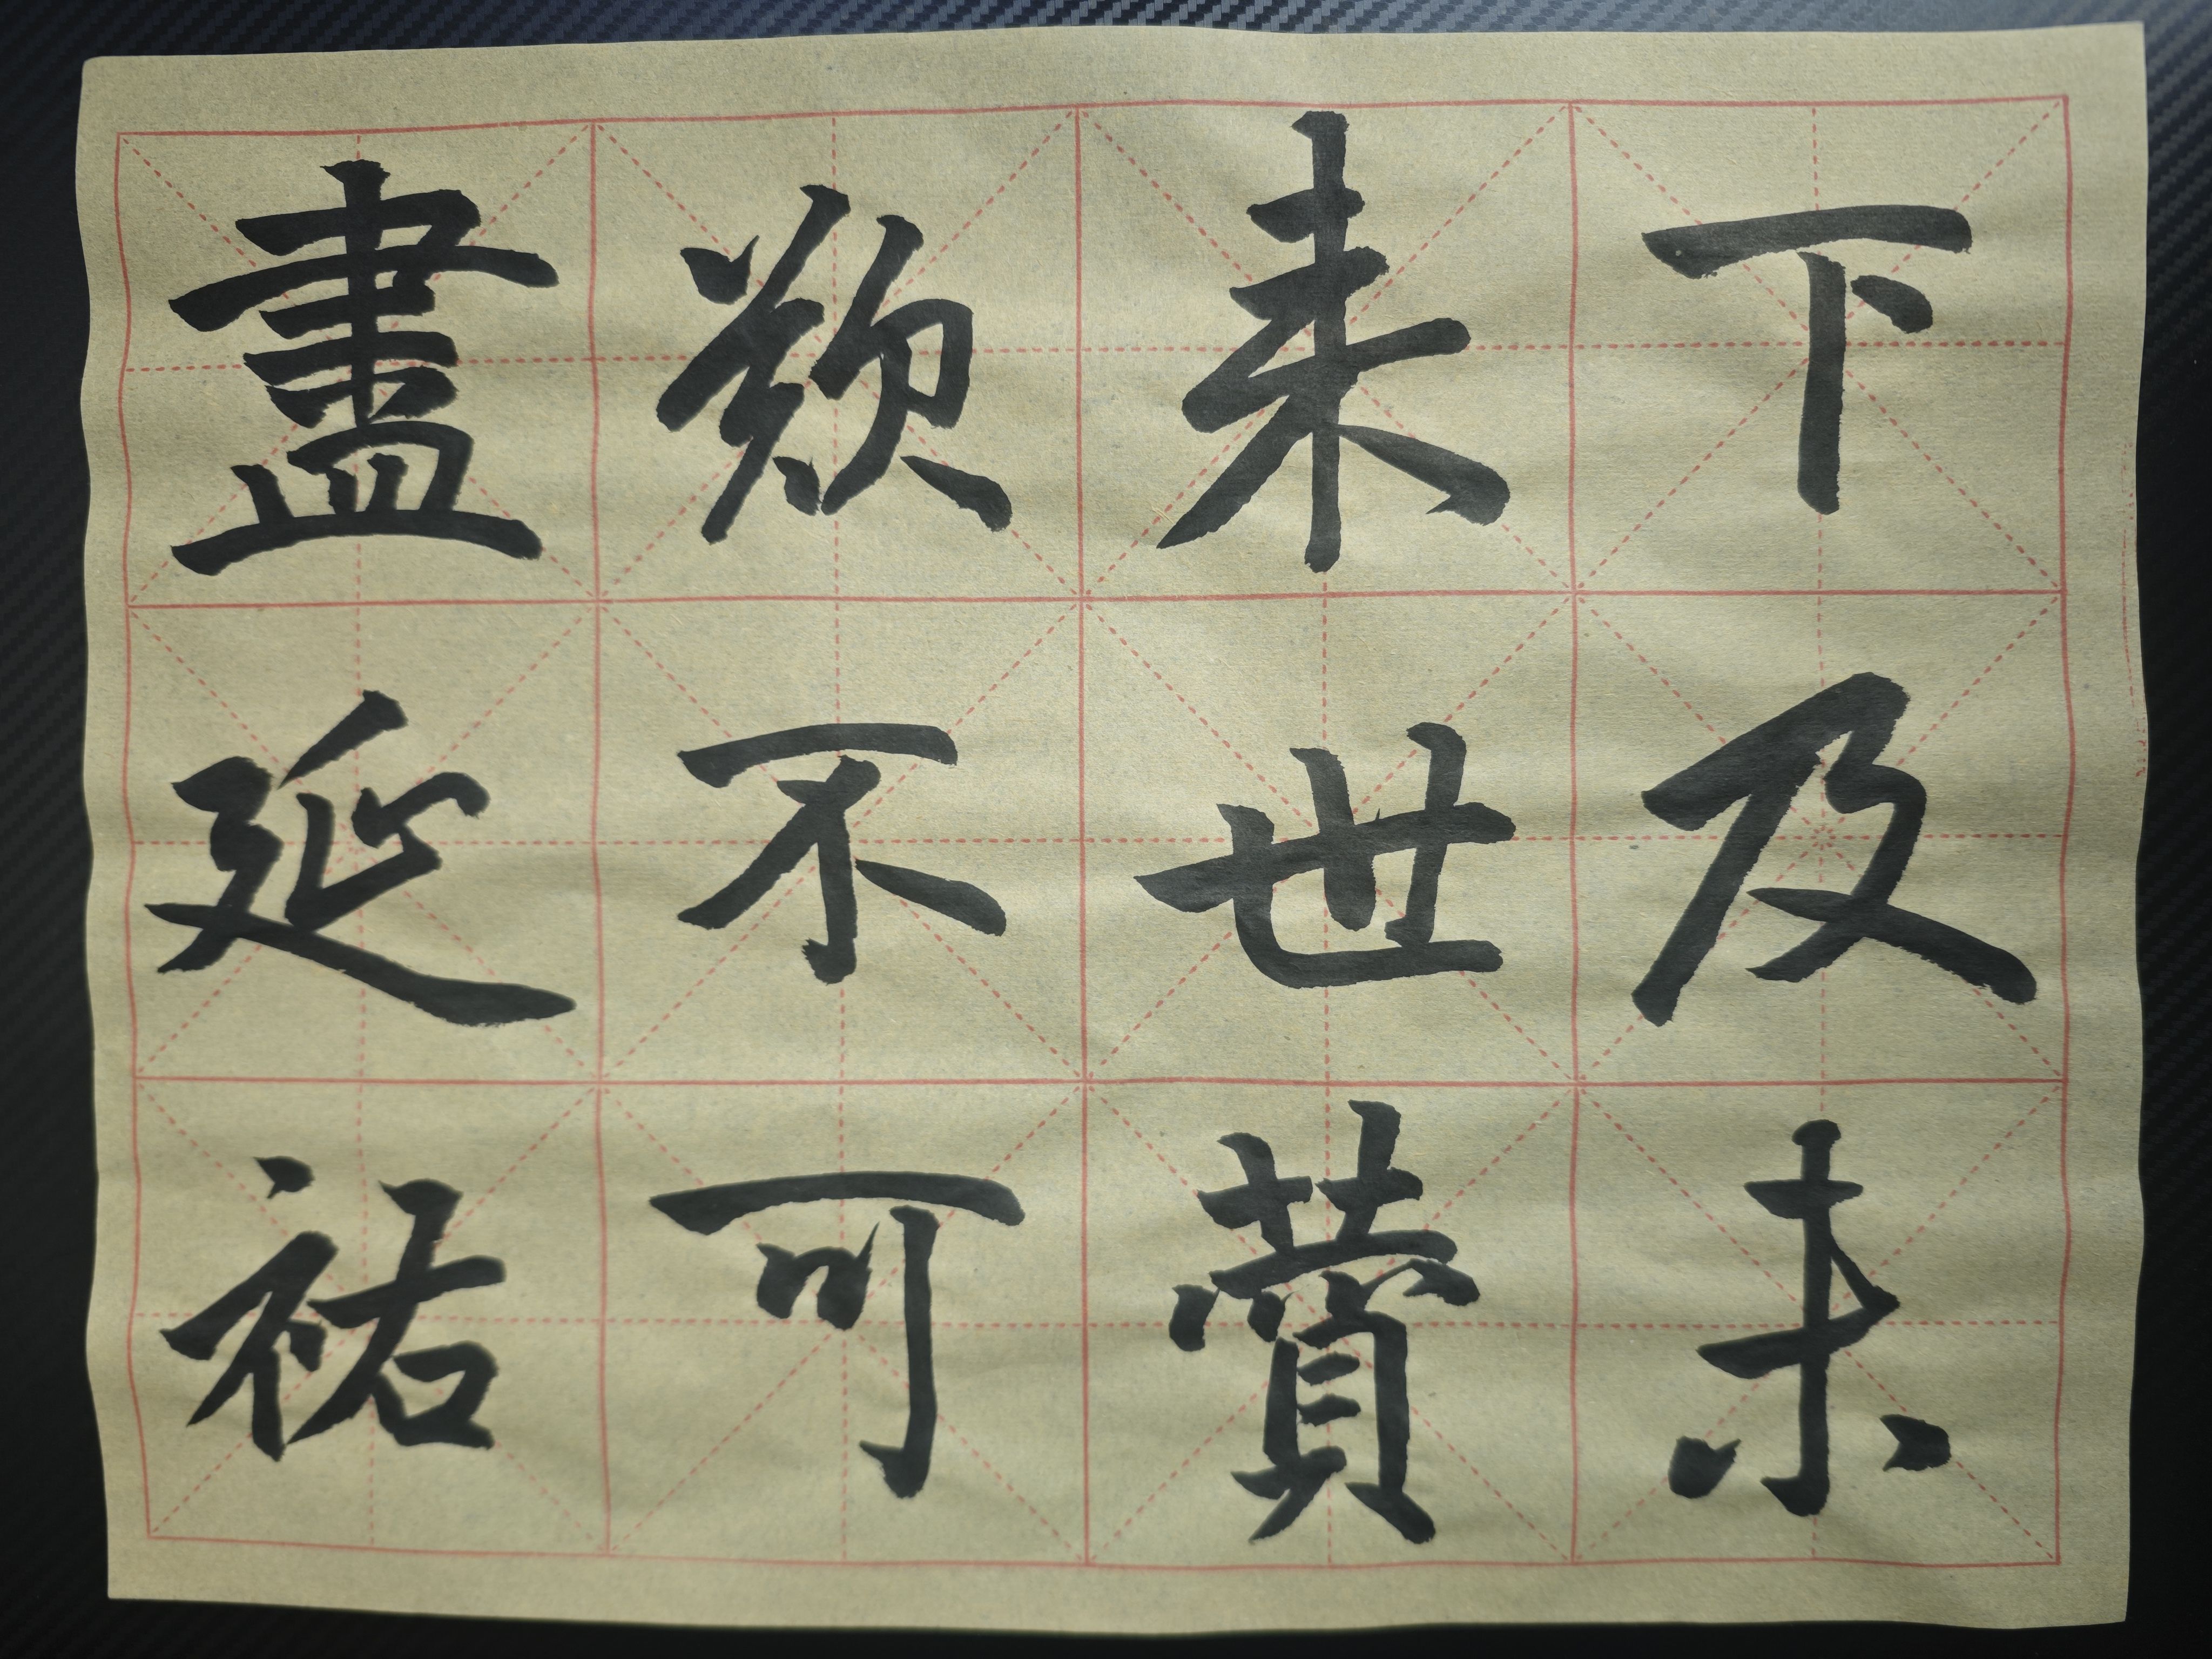 下及未
来世贊
歎不可
盡延祐